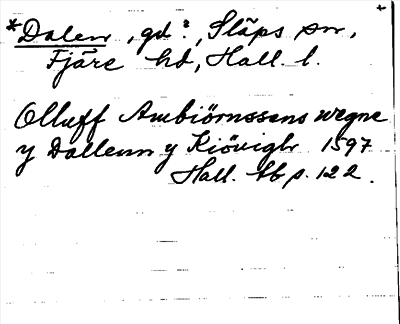 *Dalen, gd?, Släps sn,
Fjäre hd, Hall. l.
Olluff Ambiörnssens wegne
y Dallenn y Kiöviglr 1597
Hall. hb p. 122.